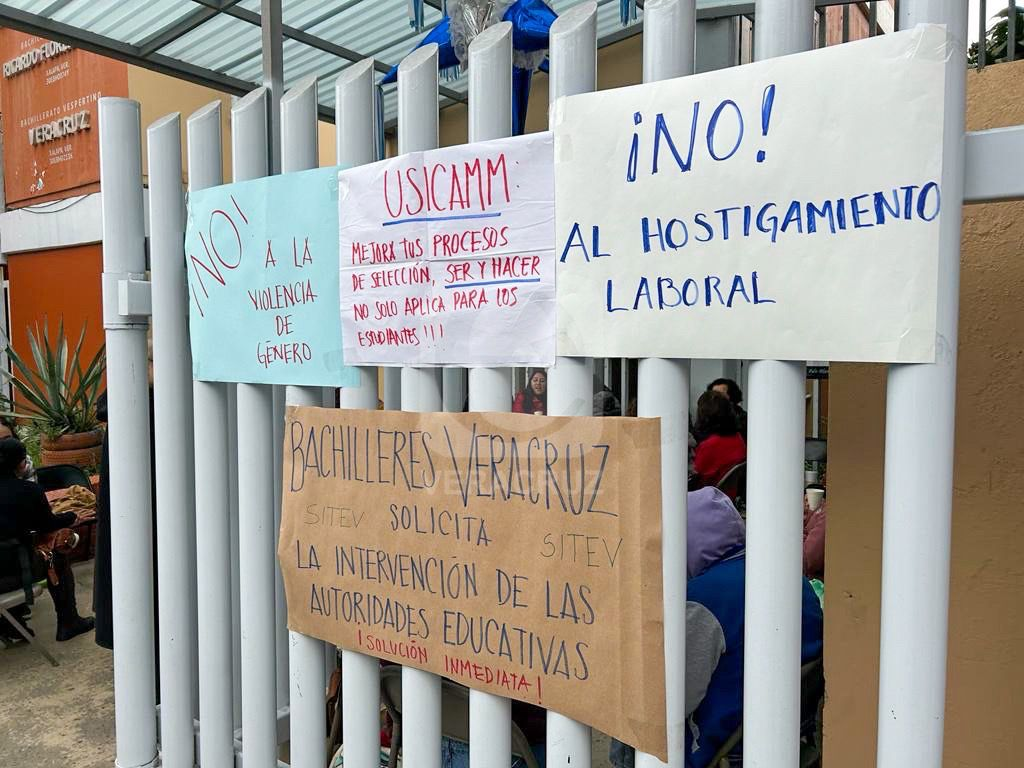 RICARDO FLORES
XALAPA, VER.
BACHILLERATO VESPERTINO
VERACRUZ
XALAPA, VER.
¡NO!
A LA
VIOLENCIA
DE
GÉNERO
USICAMM
MEJORA TUS PROCESOS
DE SELECCIÓN, SER Y HACER
NO SOLO APLICA PARA LOS
ESTUDIANTES !!!
¡NO!
AL HOSTIGAMIENTO
LABORAL
BACHILLERES VERACRUZ
SITEV SOLICITA SITEV
LA INTERVENCIÓN DE LAS
AUTORIDADES EDUCATIVAS
¡SOLUCIÓN INMEDIATA!
VERACRUZ